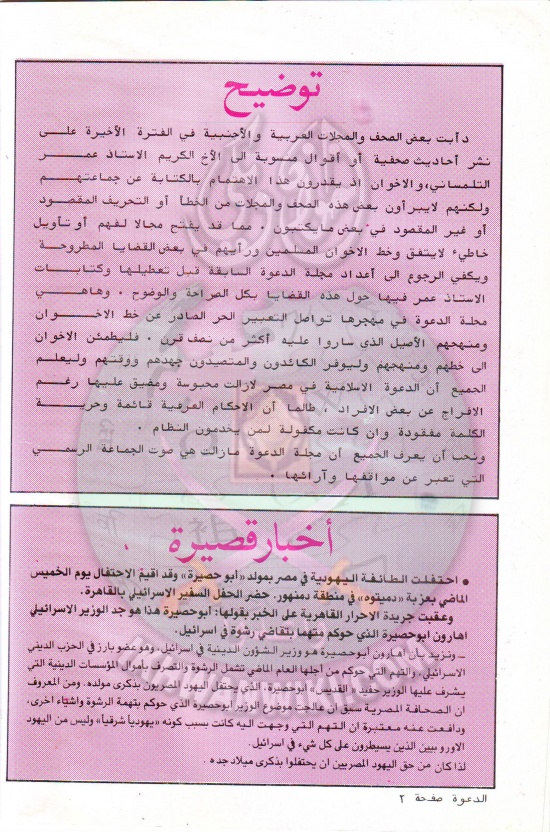 توضيح
دأبت بعض الصحف والمجلات العربية والأجنبية في الفترة الأخيرة على
نشر أحاديث صحفية أو أقوال منسوبة الى الأخ الكريم الاستاذ عمر
التلمساني، والاخوان اذ يقدرون هذا الاهتمام بالكتابة عن جماعتهم
ولكنهم لايبرأون بعض هذه الصحف والمجلات من الخطأ أو التحريف المقصود
أو غير المقصود في بعض مايكتبون ، مما قد يفتح مجالا لفهم أو تأويل
خاطيء لايتفق وخط الاخوان المسلمين ورأيهم في بعض القضايا المطروحة
ويكفي الرجوع الى أعداد مجلة الدعوة السابقة قبل تعطيلها وكتابات
الاستاذ عمر فيها حول هذه القضايا بكل الصراحة والوضوح ، وهاهي
مجلة الدعوة في مهجرها تواصل التعبير الحر الصادر عن خط الاخوان
ومنهجهم الأصيل الذي ساروا عليه أكثر من نصف قرن ، فليطمئن الاخوان
الى خطهم ومنهجهم وليوفر الكائدون والمتصيدون جهدهم ووقتهم وليعلم
الجميع أن الدعوة الاسلامية في مصر لازالت محبوسة ومضيق عليها رغم
الافراج عن بعض الافراد ، طالما أن الاحكام العرفية قائمة وحرية
الكلمة مفقودة وان كانت مكفولة لمن يخدمون النظام .
ونحب أن يعرف الجميع أن مجلة الدعوة مازالت هي صوت الجماعة الرسمي
التي تعبر عن مواقفها وآرائها .
أخبار قصيرة
● احتفلت الطائفة اليهودية في مصر بمولد «أبو حصيرة» وقد اقيم الاحتفال يوم الخميس
الماضي بعزبة «دميتوه» في منطقة دمنهور. حضر الحفل السفير الاسرائيلي بالقاهرة.
وعقبت جريدة الاحرار القاهرية على الخبر بقولها: ابوحصيرة هذا هو جد الوزير الاسرائيلي
اهارون ابوحصيرة الذي حوكم متهما بتقاضي رشوة في اسرائيل.
ــ ونزيد بأن اهارون ابوحصيرة هو وزير الشؤون الدينية في اسرائيل، وهو عضو بارز في الحزب الديني
الاسرائيلي، والتهم التي حوكم من أجلها العام الماضي تشمل الرشوة والتصرف باموال المؤسسات الدينية التي
يشرف عليها الوزير حفيد «القديس» ابوحصيرة، الذي يحتفل اليهود المصريون بذكرى مولده. ومن المعروف
ان الصحافة المصرية سبق ان عالجت موضوع الوزير ابوحصيرة الذي حوكم بتهمة الرشوة واشياء اخرى،
ودافعت عنه معتبرة ان التهم التي وجهت اليه كانت بسبب كونه «يهوديا شرقيا» وليس من اليهود
الاوروبيين الذين يسيطرون على كل شيء في اسرائيل.
لذا كان من حق اليهود المصريين ان يحتفلوا بذكرى ميلاد جده .
الدعوة صفحة ٢